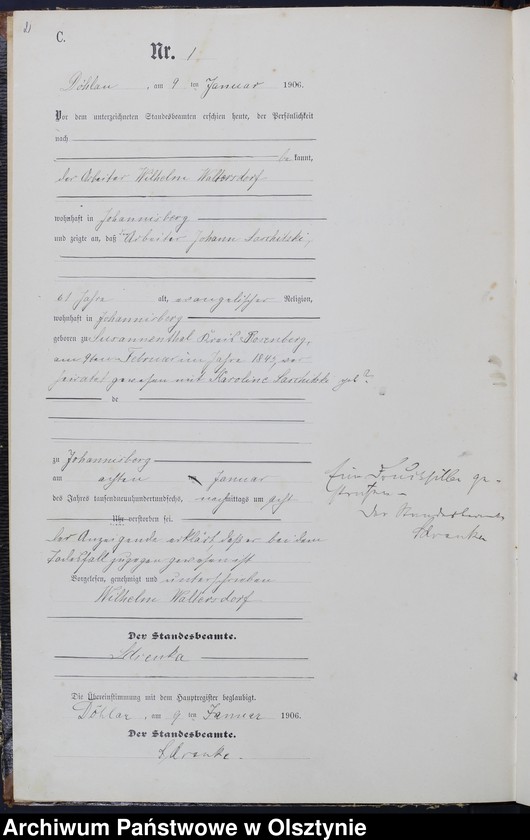 C.
Nr. 1
Döhlau, am 9ten Januar 1906.
Vor dem unterzeichneten Standesbeamten erschien heute, der Persönlichkeit
nach
bekannt,
der Arbeiter Wilhelm Waltersdorf
wohnhaft in Johannisberg
und zeigte an, daß Arbeiter Johann
61 Jahre alt, evangelischer Religion,
wohnhaft in Johannisberg
geboren zu Susannenthal Kreis Rosenberg,
am 9ten Februar im Jahre 184 , ver-
heirathet gewesen mit Karoline geb?
de
zu Johannisberg
am achten Januar
des Jahres tausendneunhundertsechs, nachmittags um acht
Uhr verstorben sei.
der Anzeigende erklärt, daß er bei dem
Todesfall zugegen gewesen ist
Vorgelesen, genehmigt und unterschrieben
Wilhelm Waltersdorf
Der Standesbeamte.
Die Übereinstimmung mit dem Hauptregister beglaubigt.
Döhlau, am 9ten Januar 1906.
Der Standesbeamte.
Eine Druckstelle ge-
strichen.
Der Standesbeamte
Archiwum Państwowe w Olsztynie